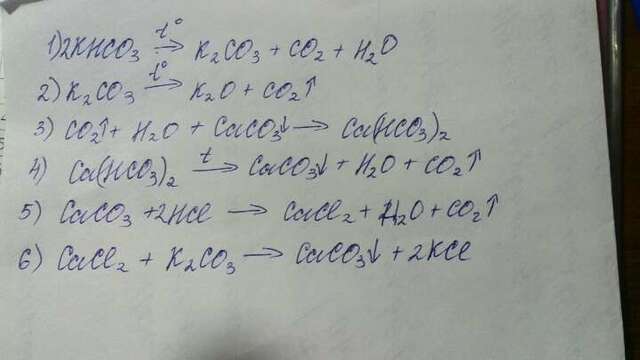 1) 2KHCO₃ t°→ K₂CO₃ + CO₂ + H₂O
2) K₂CO₃ t°→ K₂O + CO₂↑
3) CO₂↑ + H₂O + CaCO₃↓ → Ca(HCO₃)₂
4) Ca(HCO₃)₂ t→ CaCO₃↓ + H₂O + CO₂↑
5) CaCO₃ + 2HCl → CaCl₂ + H₂O + CO₂↑
6) CaCl₂ + K₂CO₃ → CaCO₃↓ + 2KCl